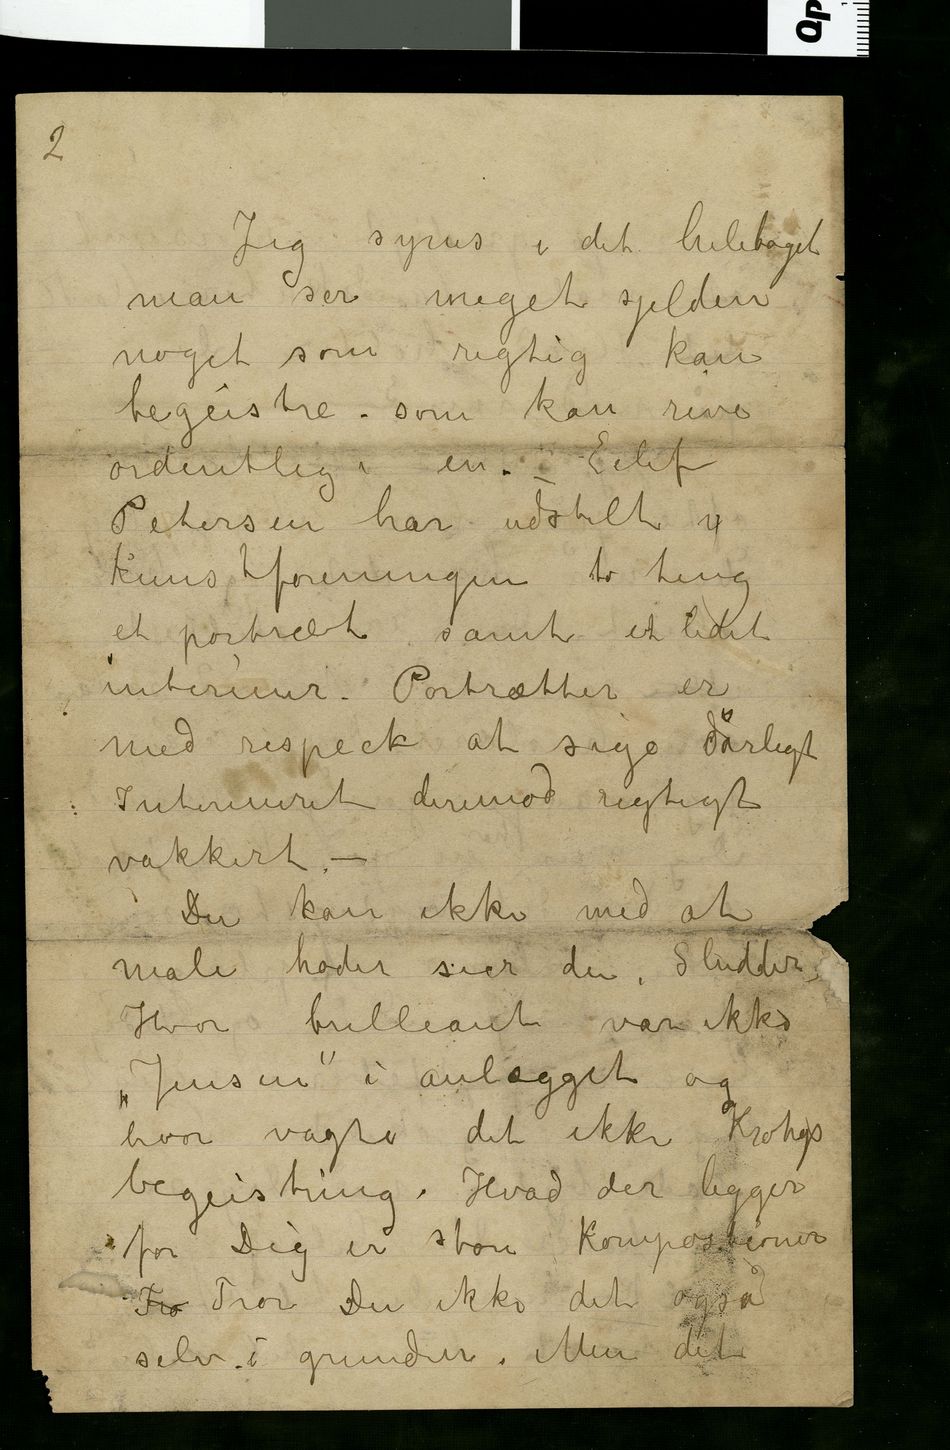 2
Jeg synes i det heletaget
man ser meget sjelden
noget som rigtig kan
begeistre. som kan rive
ordentlig i en. – Eilif
Petersen har udstilt i
Kunstforeningen to ting
et portræt samt et lidet
interieur. Portrættet er
med respeck at sige dårligt
Interieuret derimod rigtigt
vakkert. —
Du kan ikke med at
male hoder sier du. Sludder,
Hvor brilleant var ikke
„Jensen" i anlægget og
hvor vagte det ikke Krohgs
begeistring. Hvad der ligger
for Dig er store Kompositioner
Tro Tror Du ikke det også
selv i grunden. Men det